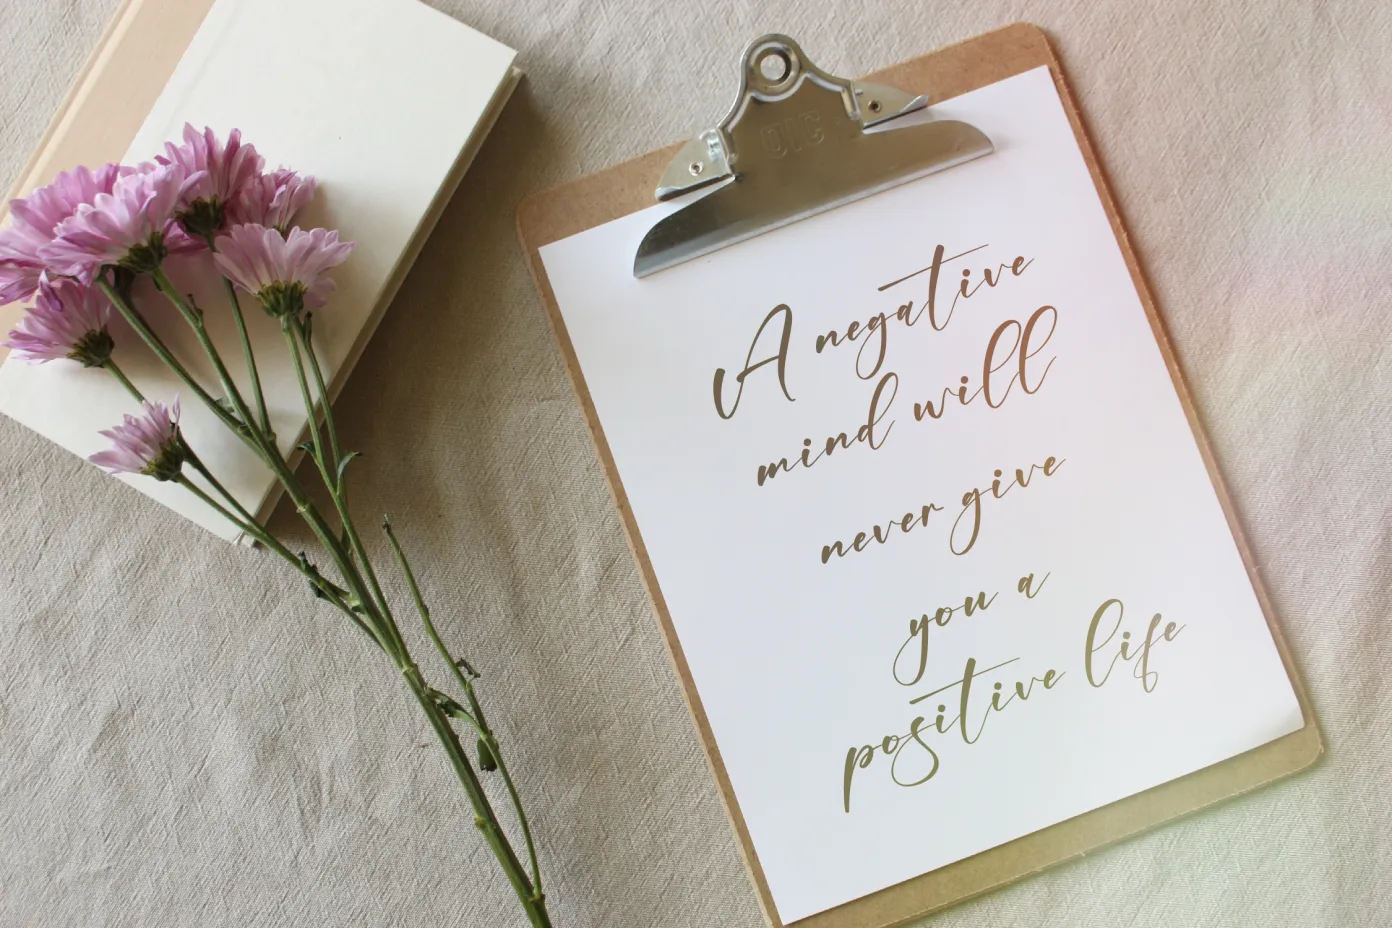 OIC
A negative
mind will
never give
you a
positive life